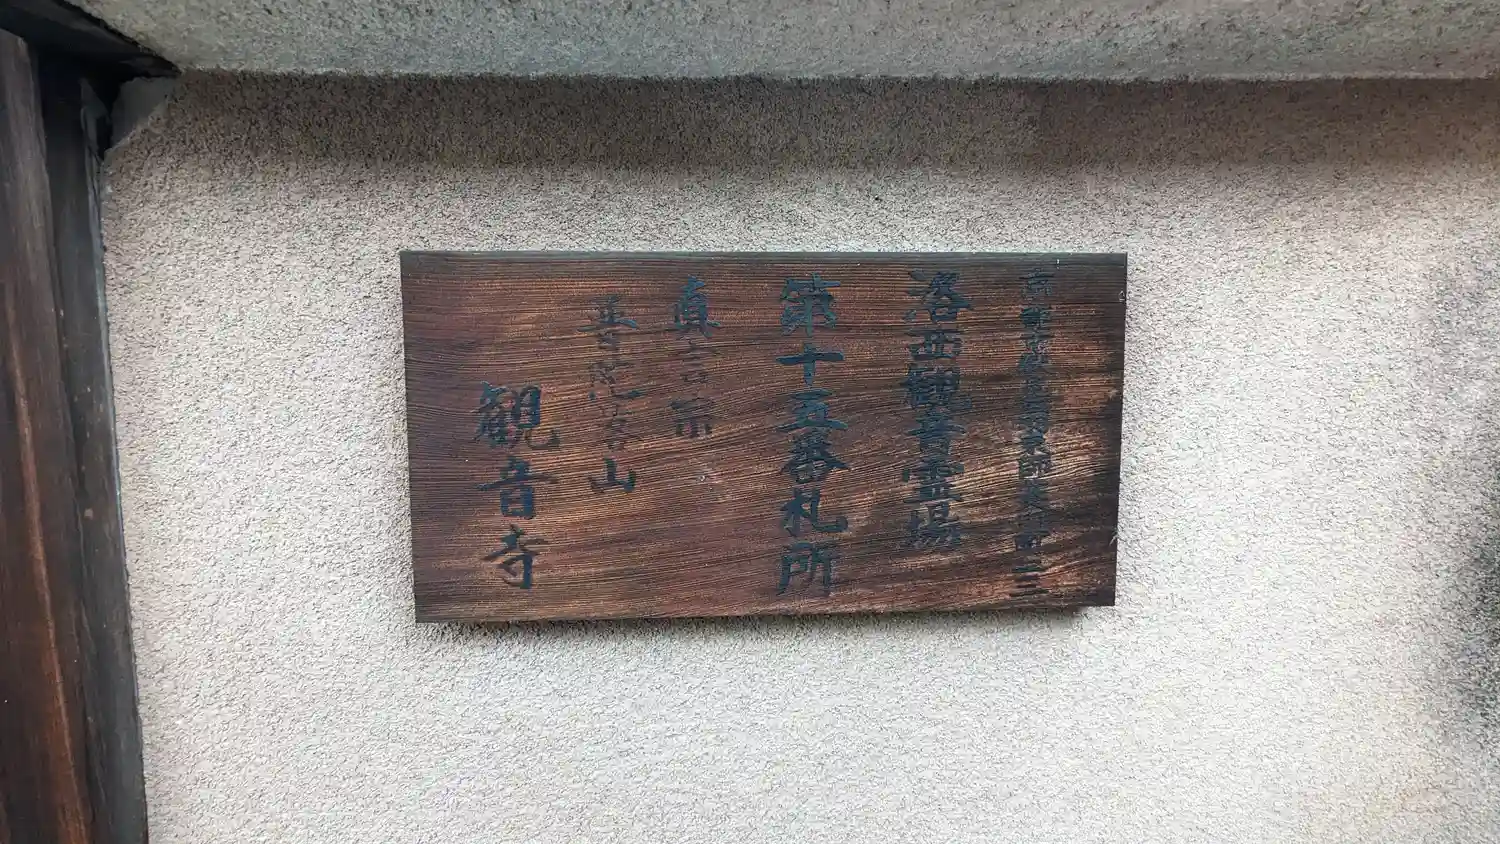 洛西観音霊場
第十五番札所
真言宗
普陀洛山
観音寺